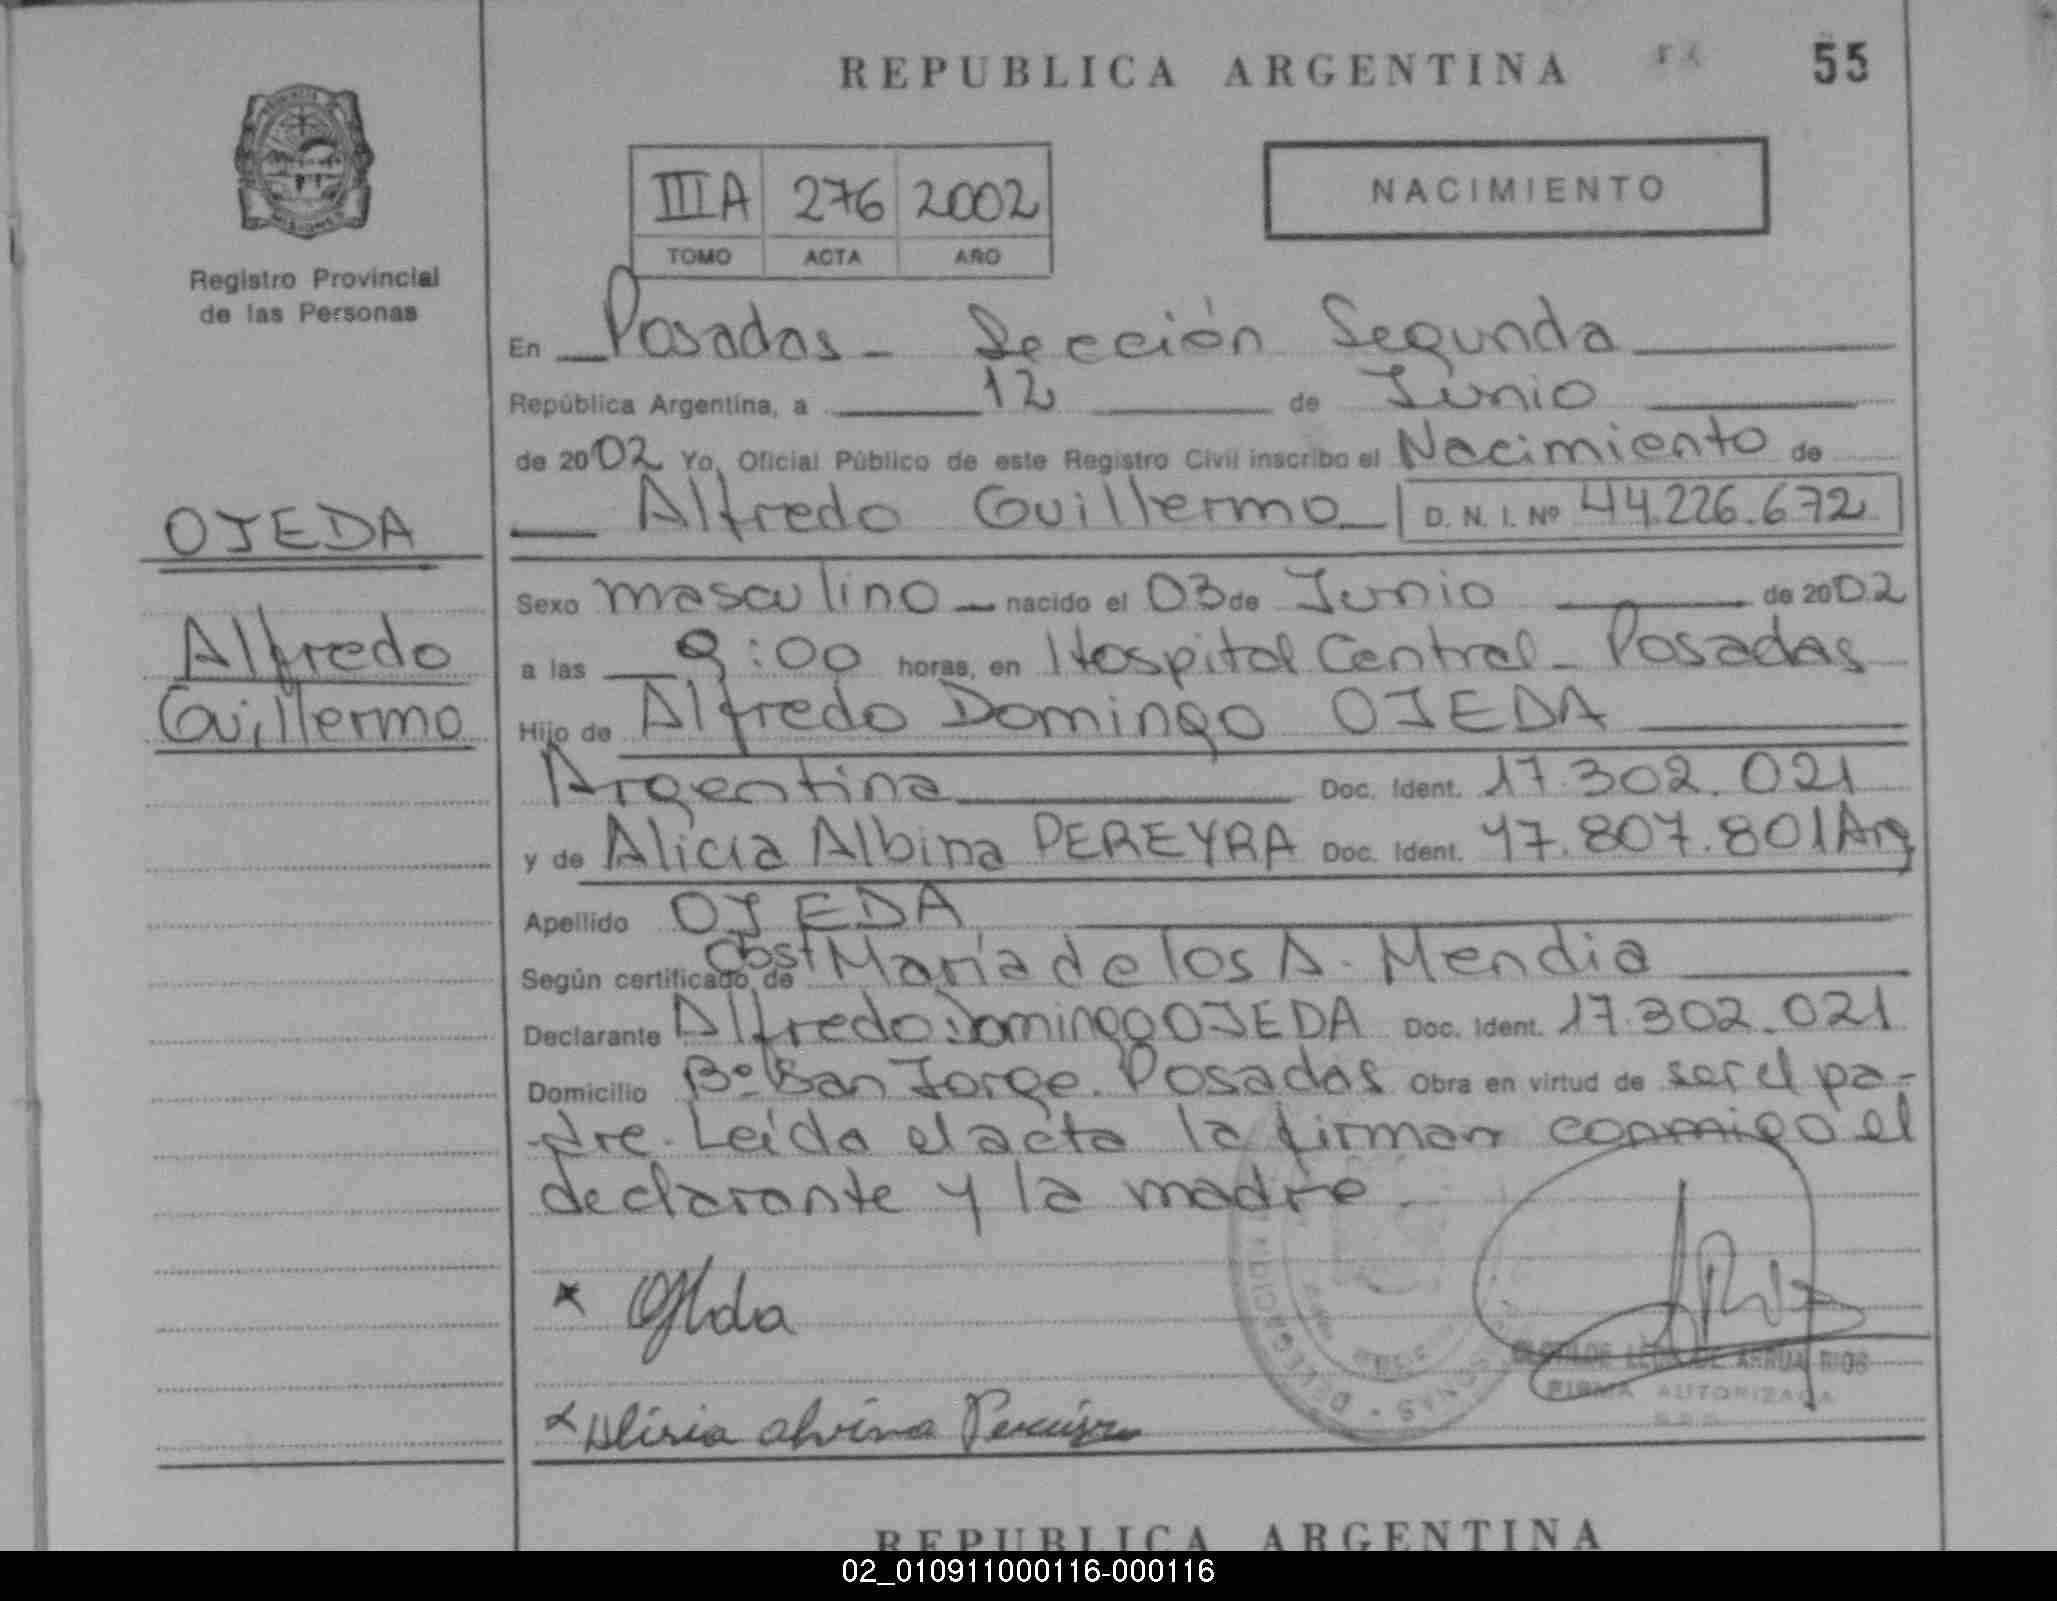 REPUBLICA ARGENTINA
55
IIIA 276 2002
TOMO ACTA AÑO
NACIMIENTO
Registro Provincial
de las Personas
En Posadas - Sección Segunda
República Argentina, a 12 de Junio
de 2002 Yo, Oficial Público de este Registro Civil inscribo el Nacimiento de
Alfredo Guillermo D. N. I. Nº 44.226.672
OJEDA
Alfredo
Guillermo
Sexo masculino nacido el 03 de Junio de 2002
a las 9:00 horas, en Hospital Central - Posadas
Hijo de Alfredo Domingo OJEDA
Argentina Doc. Ident. 17.302.021
y de Alicia Albina PEREYRA Doc. Ident. 17.807.801 Arg
Apellido OJEDA
Según certificado de Obst María de los A. Mendia
Declarante Alfredo Domingo OJEDA Doc. Ident. 17.302.021
Domicilio Bº San Jorge. Posadas Obra en virtud de ser el pa-
dre. Leída el acta la firman conmigo el
declarante y la madre.
FIRMA AUTORIZADA
Alisia alvina Pereira
REPUBLICA ARGENTINA
02_010911000116-000116